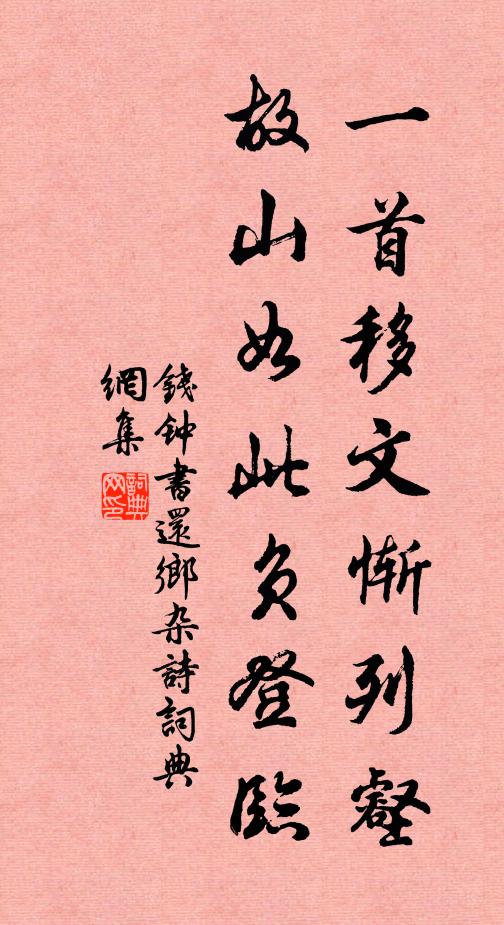 一首移文惭列壑
故山如此负登臨
錢钟書還鄉杂詩詞典
網集
詞典网印